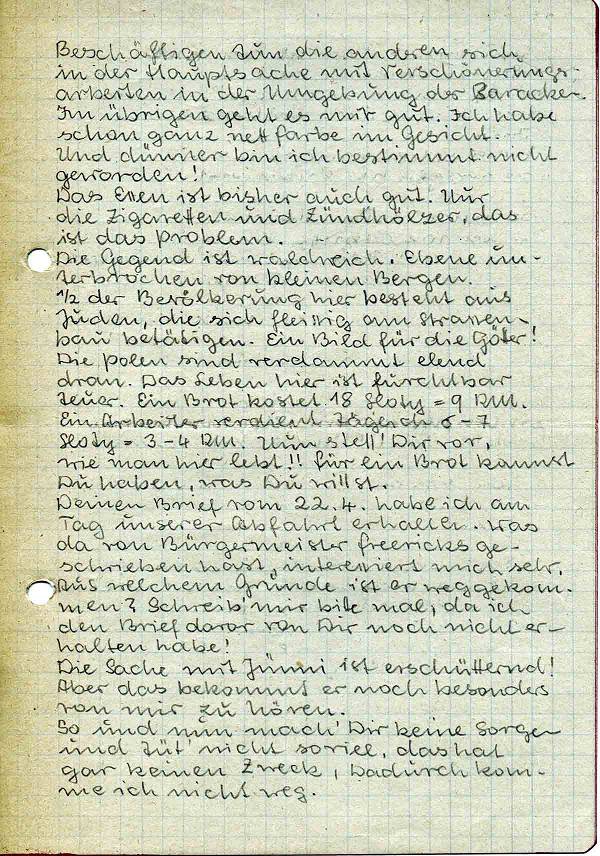 Beschäftigen tun die anderen sich
in der Hauptsache mit Verschönerungs-
arbeiten in der Umgebung der Baracken.
Im übrigen geht es mir gut. Ich habe
schon ganz nett farbe im Gesicht.
Und dünner bin ich bestimmt nicht
geworden!
Das Essen ist bisher auch gut. Nur
die Zigaretten und Zündhölzer, das
ist das Problem.
Die Gegend ist waldreich. Ebene un-
terbrochen von kleinen Bergen.
½ der Bevölkerung hier besteht aus
Juden, die sich fleissig am Strassen-
bau betätigen. Ein Bild für die Götter!
Die Polen sind verdammt elend
dran. Das Leben hier ist furchtbar
teuer. Ein Brot kostet 18 Sloty = 9 RM.
Ein Arbeiter verdient täglich 6-7
Sloty = 3-4 RM. Nun stell' Dir vor,
wie man hier lebt!! für ein Brot kannst
Du haben, was Du willst.
Deinen Brief vom 22.4. habe ich am
Tag unserer Abfahrt erhalten. Was
da von Bürgermeister freericks ge-
schrieben hast, interessiert mich sehr.
Aus welchem Grunde ist er weggekom-
men? Schreib' mir bitte mal, da ich
den Brief davor von Dir noch nicht er-
halten habe!
Die Sache mit Jünni ist erschütternd!
Aber das bekommt er noch besonders
von mir zu hören.
So und nun mach' Dir keine Sorgen
und tüt' nicht soviel, das hat
gar keinen Zweck, Dadurch kom-
me ich nicht weg.